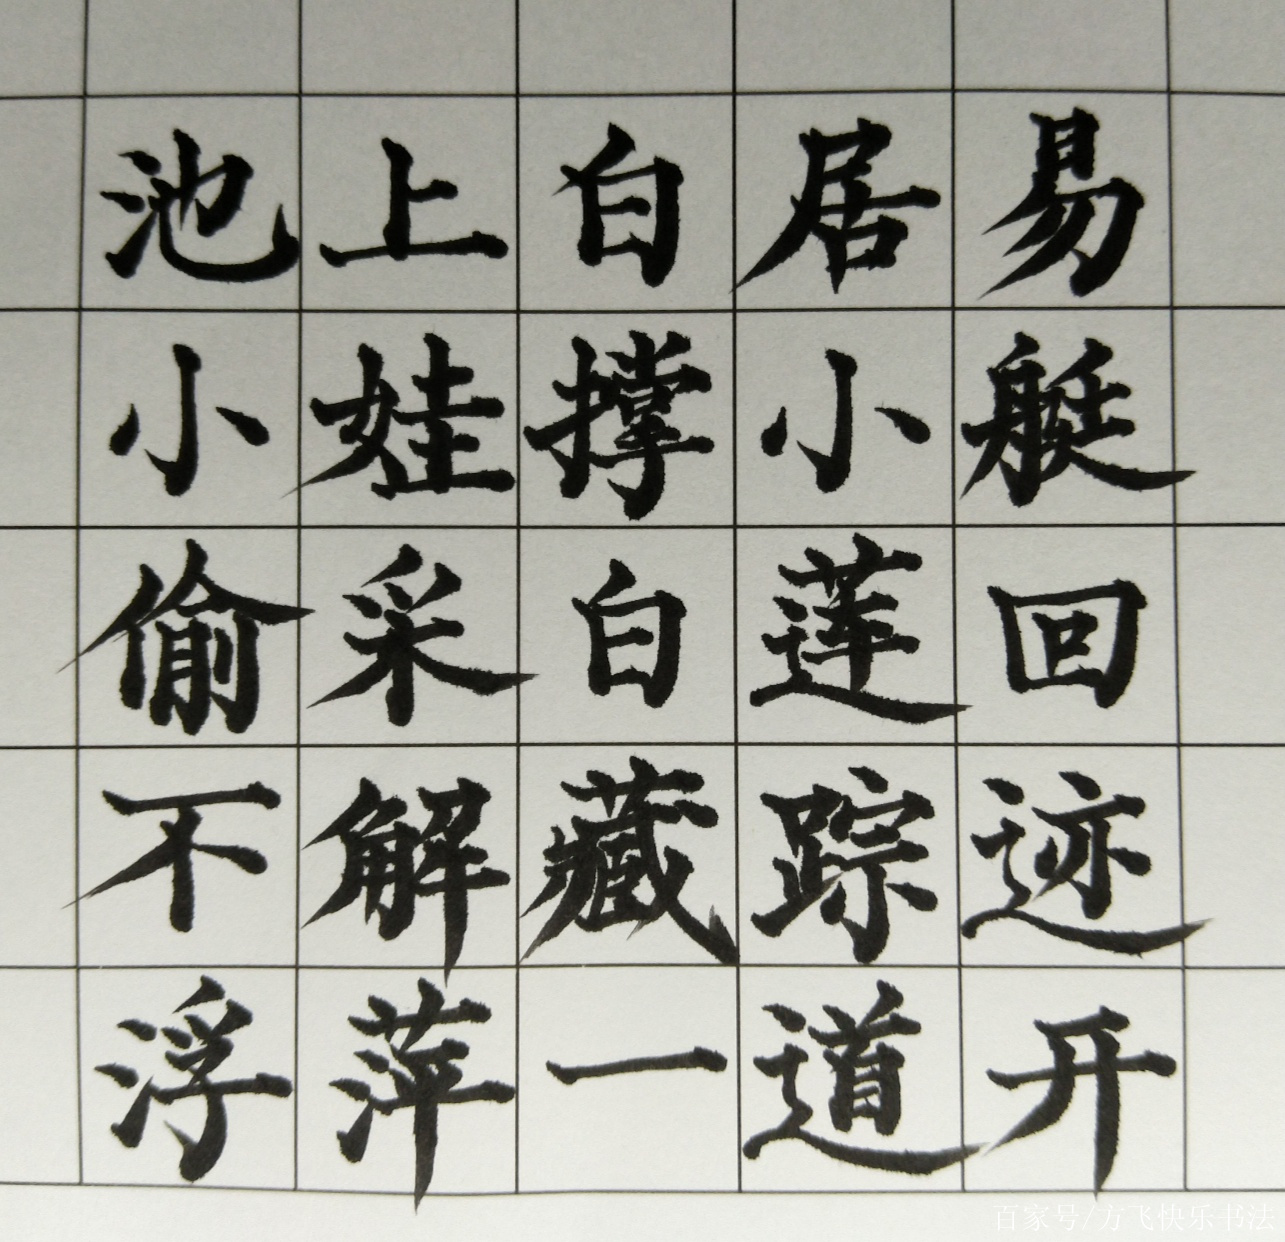 池上白居易
小娃撑小艇
偷采白莲回
不解藏踪迹
浮萍一道开
百家号/方飞快乐书法